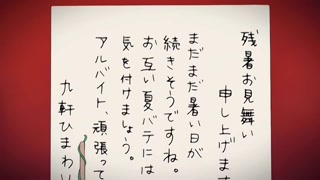 残暑お見舞い
申し上げます
まだまだ暑い日が
続きそうですね。
お互い夏バテには
気を付けましょう。
アルバイト、頑張って
九軒ひまわ